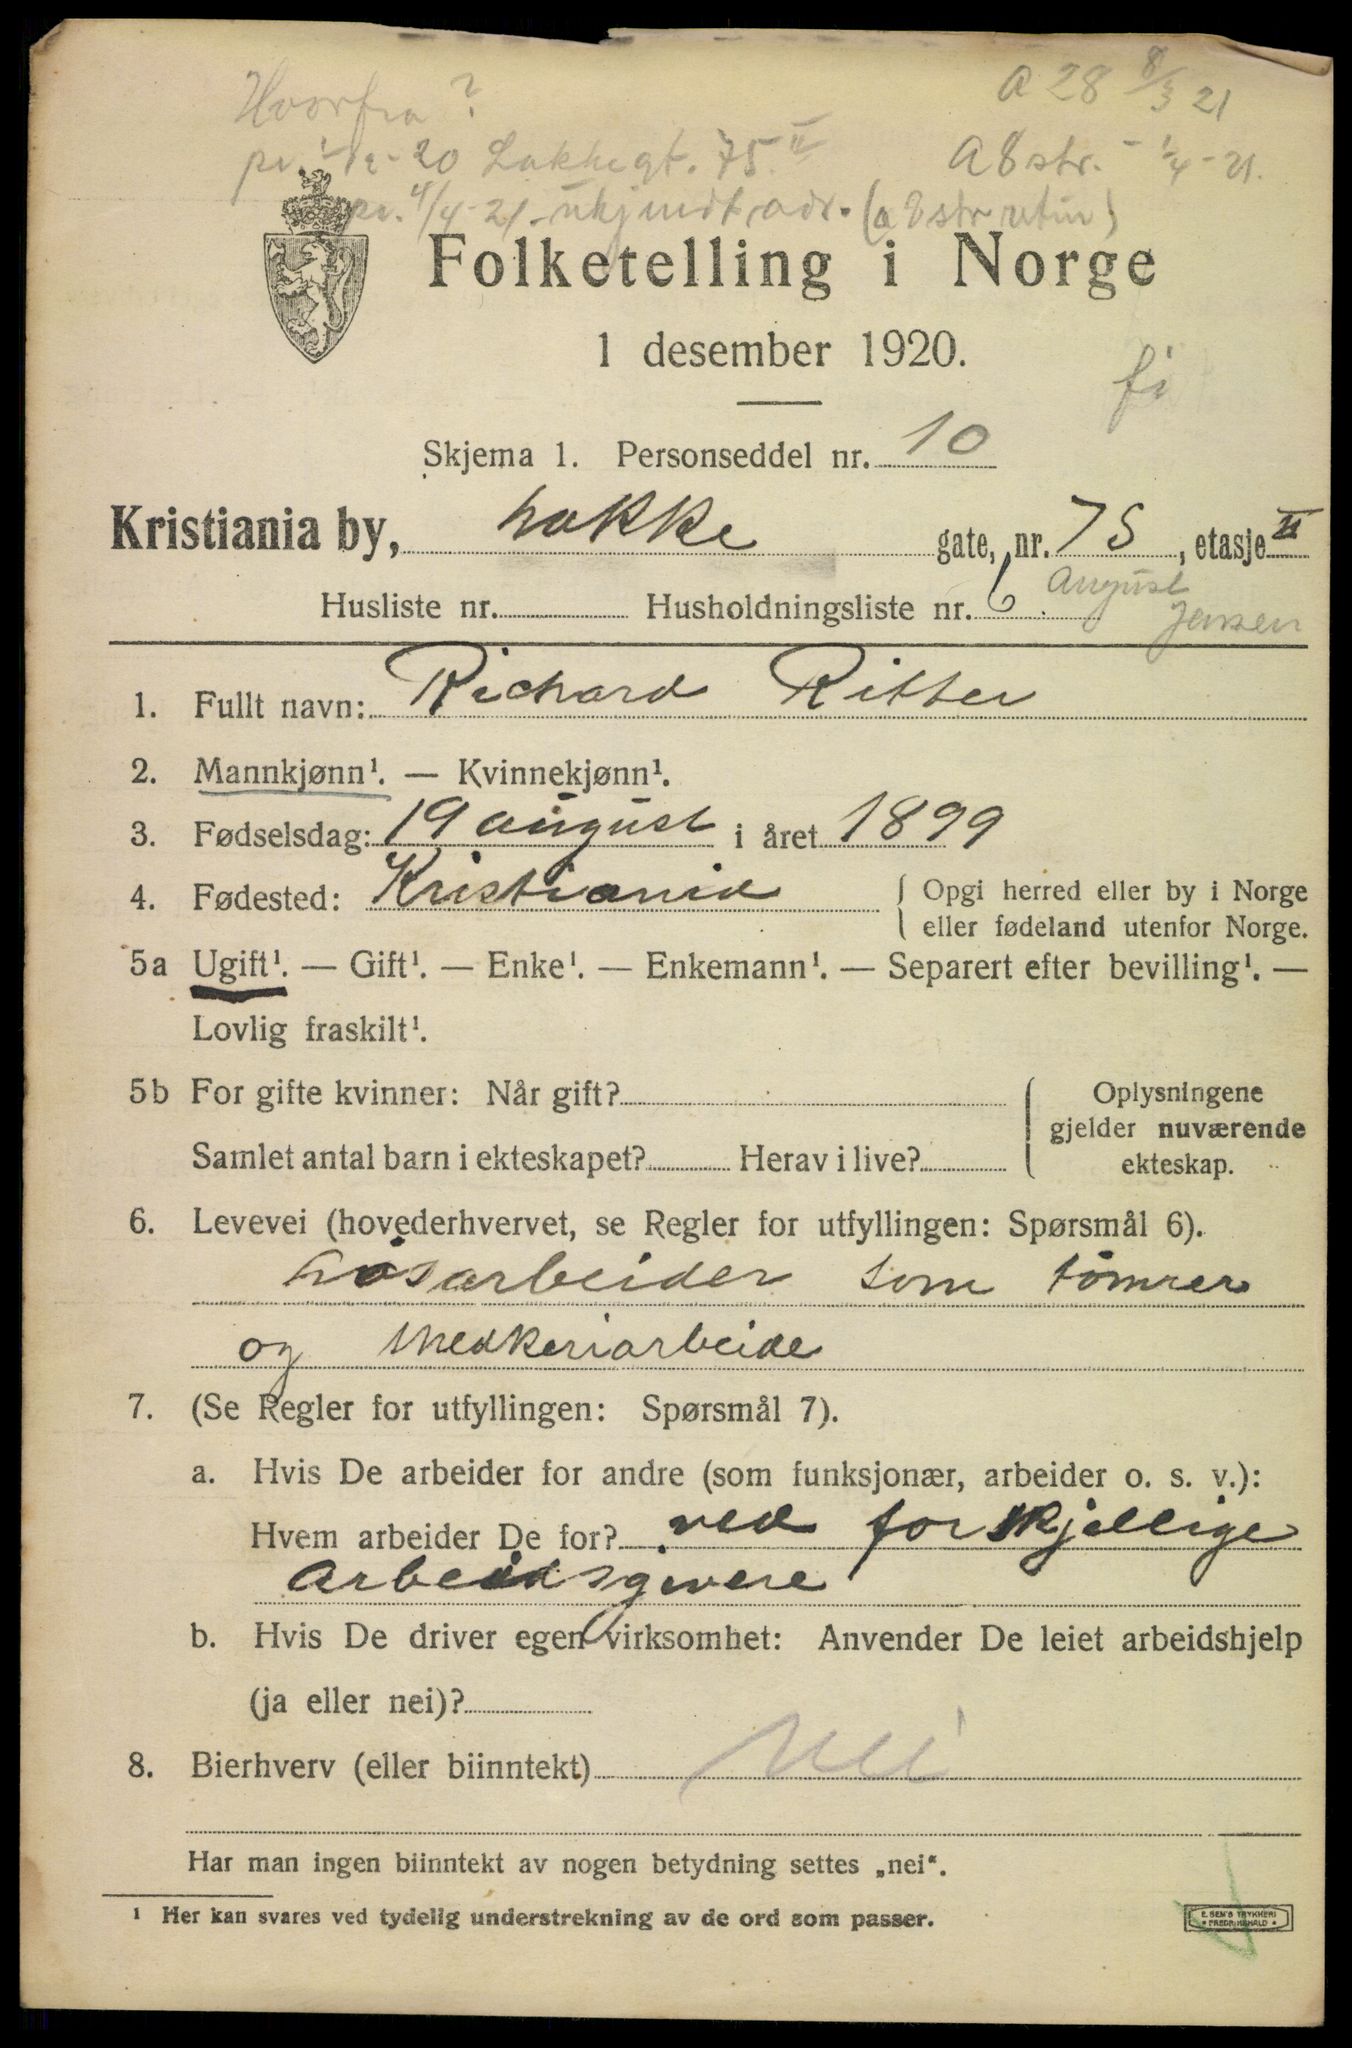 Hvorfra?
A 28 8/3 21
pr. 1/12-20 Lakkegt. 75 II
A 8 str. - 1/4-21.
pr. 4/4-21. ukjendt adr. (a 8 str retur)
Folketelling i Norge
1 desember 1920.
Skjema 1. Personseddel nr. 10
Kristiania by, Lakke gate, nr. 75, etasje II
Husliste nr. Husholdningsliste nr. 6 August
Jensen
1. Fullt navn: Richard Ritter
2. Mannkjønn¹. — Kvinnekjønn¹.
3. Fødselsdag: 19 august i året 1899
4. Fødested: Kristiania { Opgi herred eller by i Norge
eller fødeland utenfor Norge.
5a Ugift¹. — Gift¹. — Enke¹. — Enkemann¹. — Separert efter bevilling¹. —
Lovlig fraskilt¹.
5b For gifte kvinner: Når gift?
Samlet antal barn i ekteskapet? Herav i live?
{ Oplysningene
gjelder nuværende
ekteskap.
6. Levevei (hovederhvervet, se Regler for utfyllingen: Spørsmål 6).
Løsarbeider som tømrer
og snedkeriarbeide
7. (Se Regler for utfyllingen: Spørsmål 7).
a. Hvis De arbeider for andre (som funksjonær, arbeider o. s. v.):
Hvem arbeider De for? ved forskjellige
Arbeidsgivere
b. Hvis De driver egen virksomhet: Anvender De leiet arbeidshjelp
(ja eller nei)?
8. Bierhverv (eller biinntekt) Nei
Har man ingen biinntekt av nogen betydning settes „nei“.
¹ Her kan svares ved tydelig understrekning av de ord som passer.
E. SEM'S TRYKKERI
FREDRIKSHALD